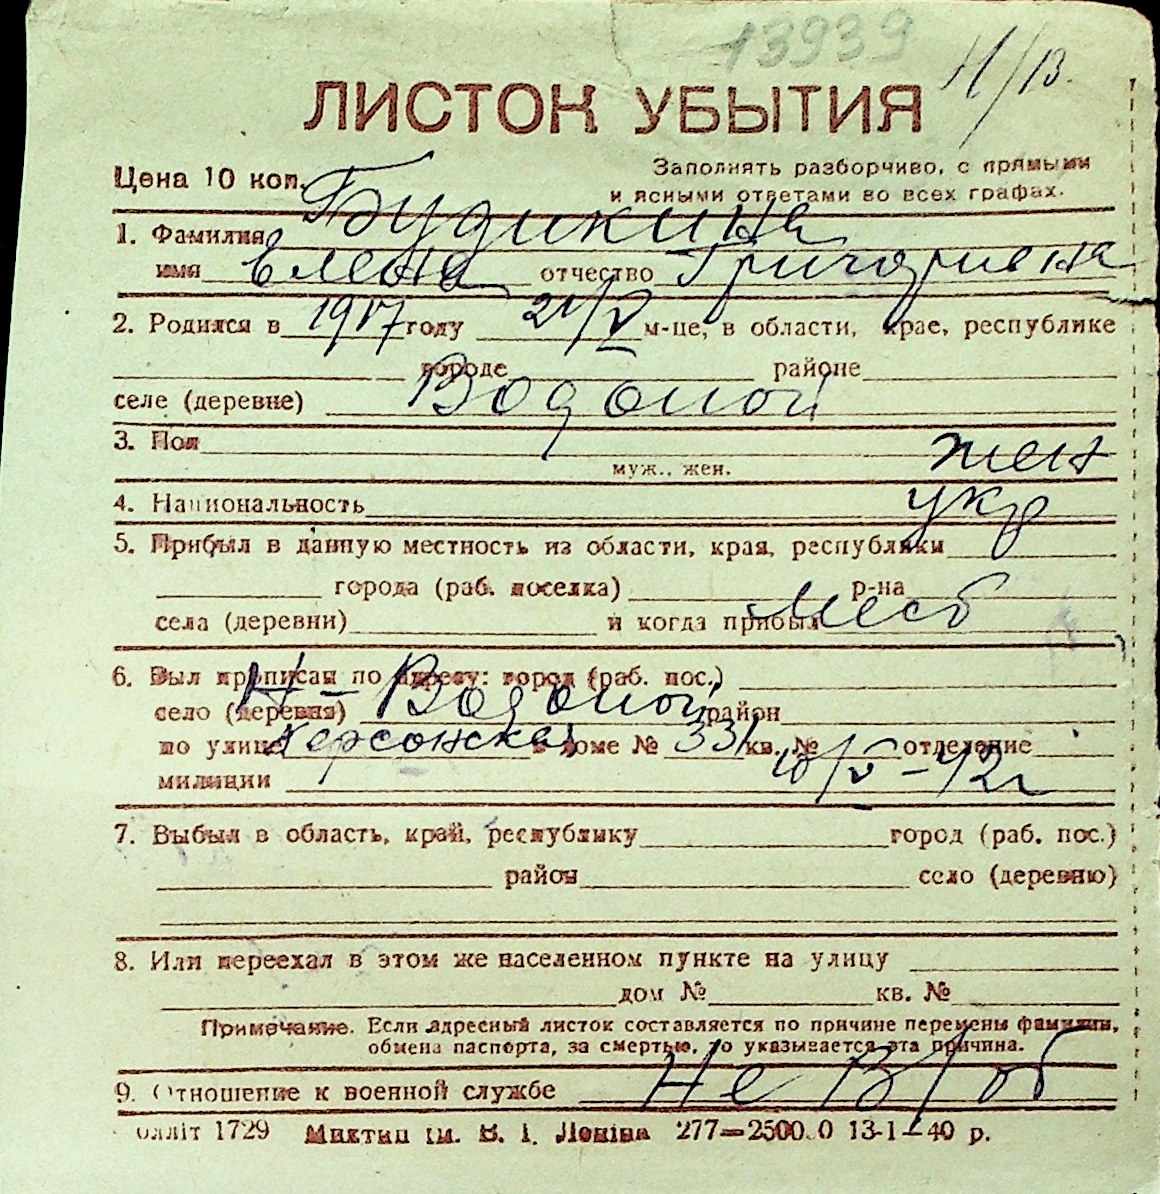 13939
Н/В.
ЛИСТОК УБЫТИЯ
Цена 10 коп.
Заполнять разборчиво, с прямыми
и ясными ответами во всех графах.
1. Фамилия Будикина
имя Елена отчество Григориевна
2. Родился в 1917 году 21/V м-це, в области, крае, республике
городе районе
селе (деревне) Водопой
3. Пол жен
муж., жен.
4. Национальность укр
5. Прибыл в данную местность из области, края, республики
города (раб. поселка) р-на
села (деревни) и когда прибыл Мест
6. Был прописан по адресу: город (раб. пос.)
село (деревня) Н-Водопой район
по улице Херсонская в доме № 331 кв. № отделение
милиции 10/V-42г
7. Выбыл в область, край, республику город (раб. пос.)
район село (деревню)
8. Или переехал в этом же населенном пункте на улицу
дом № кв. №
Примечание. Если адресный листок составляется по причине перемены фамилии,
обмена паспорта, за смертью, то указывается эта причина.
9. Отношение к военной службе Не В/об
олліт 1729 Миктип ім. В. І. Леніна 277—2500.0 13-1—40 р.